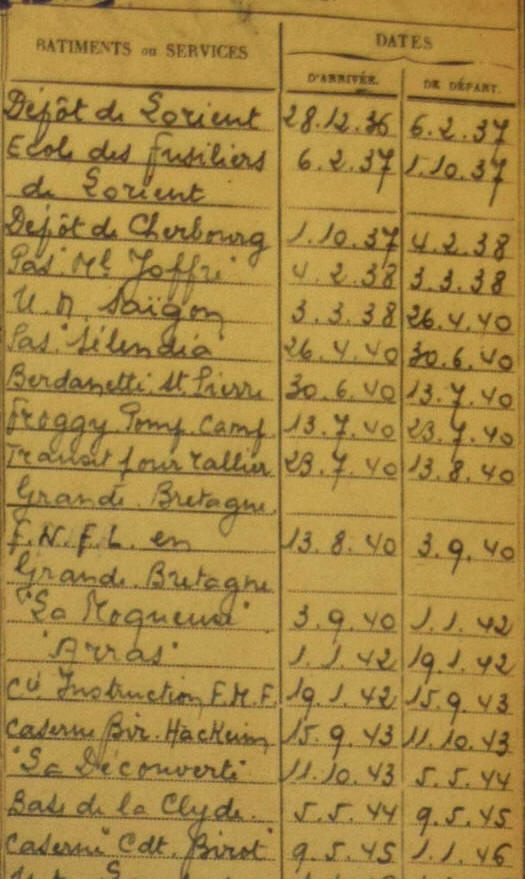 DATES
BATIMENTS ou SERVICES
D'ARRIVÉE. DE DÉPART.
Dépôt de Lorient 28.12.36 6.2.37
Ecole des fusiliers 6.2.37 1.10.37
de Lorient
Dépôt de Cherbourg 1.10.37 4.2.38
Pas. Mal Joffre 4.2.38 3.3.38
U.M. Saïgon 3.3.38 26.4.40
Pas. "Sélendia" 26.4.40 30.6.40
St Pierre 30.6.40 13.7.40
Froggy Camp. 13.7.40 23.7.40
Transit pour rallier 23.7.40 13.8.40
Grande Bretagne.
F.N.F.L. en 13.8.40 3.9.40
Grande Bretagne
"La Moqueuse" 3.9.40 1.1.42
"Arras" 1.1.42 19.1.42
Cie Instruction F.M.F. 19.1.42 15.9.43
Caserne Bir-Hackeim 15.9.43 11.10.43
"La Découverte" 11.10.43 5.5.44
Base de la Clyde. 5.5.44 9.5.45
Caserne "Cdt. Birot" 9.5.45 1.1.46